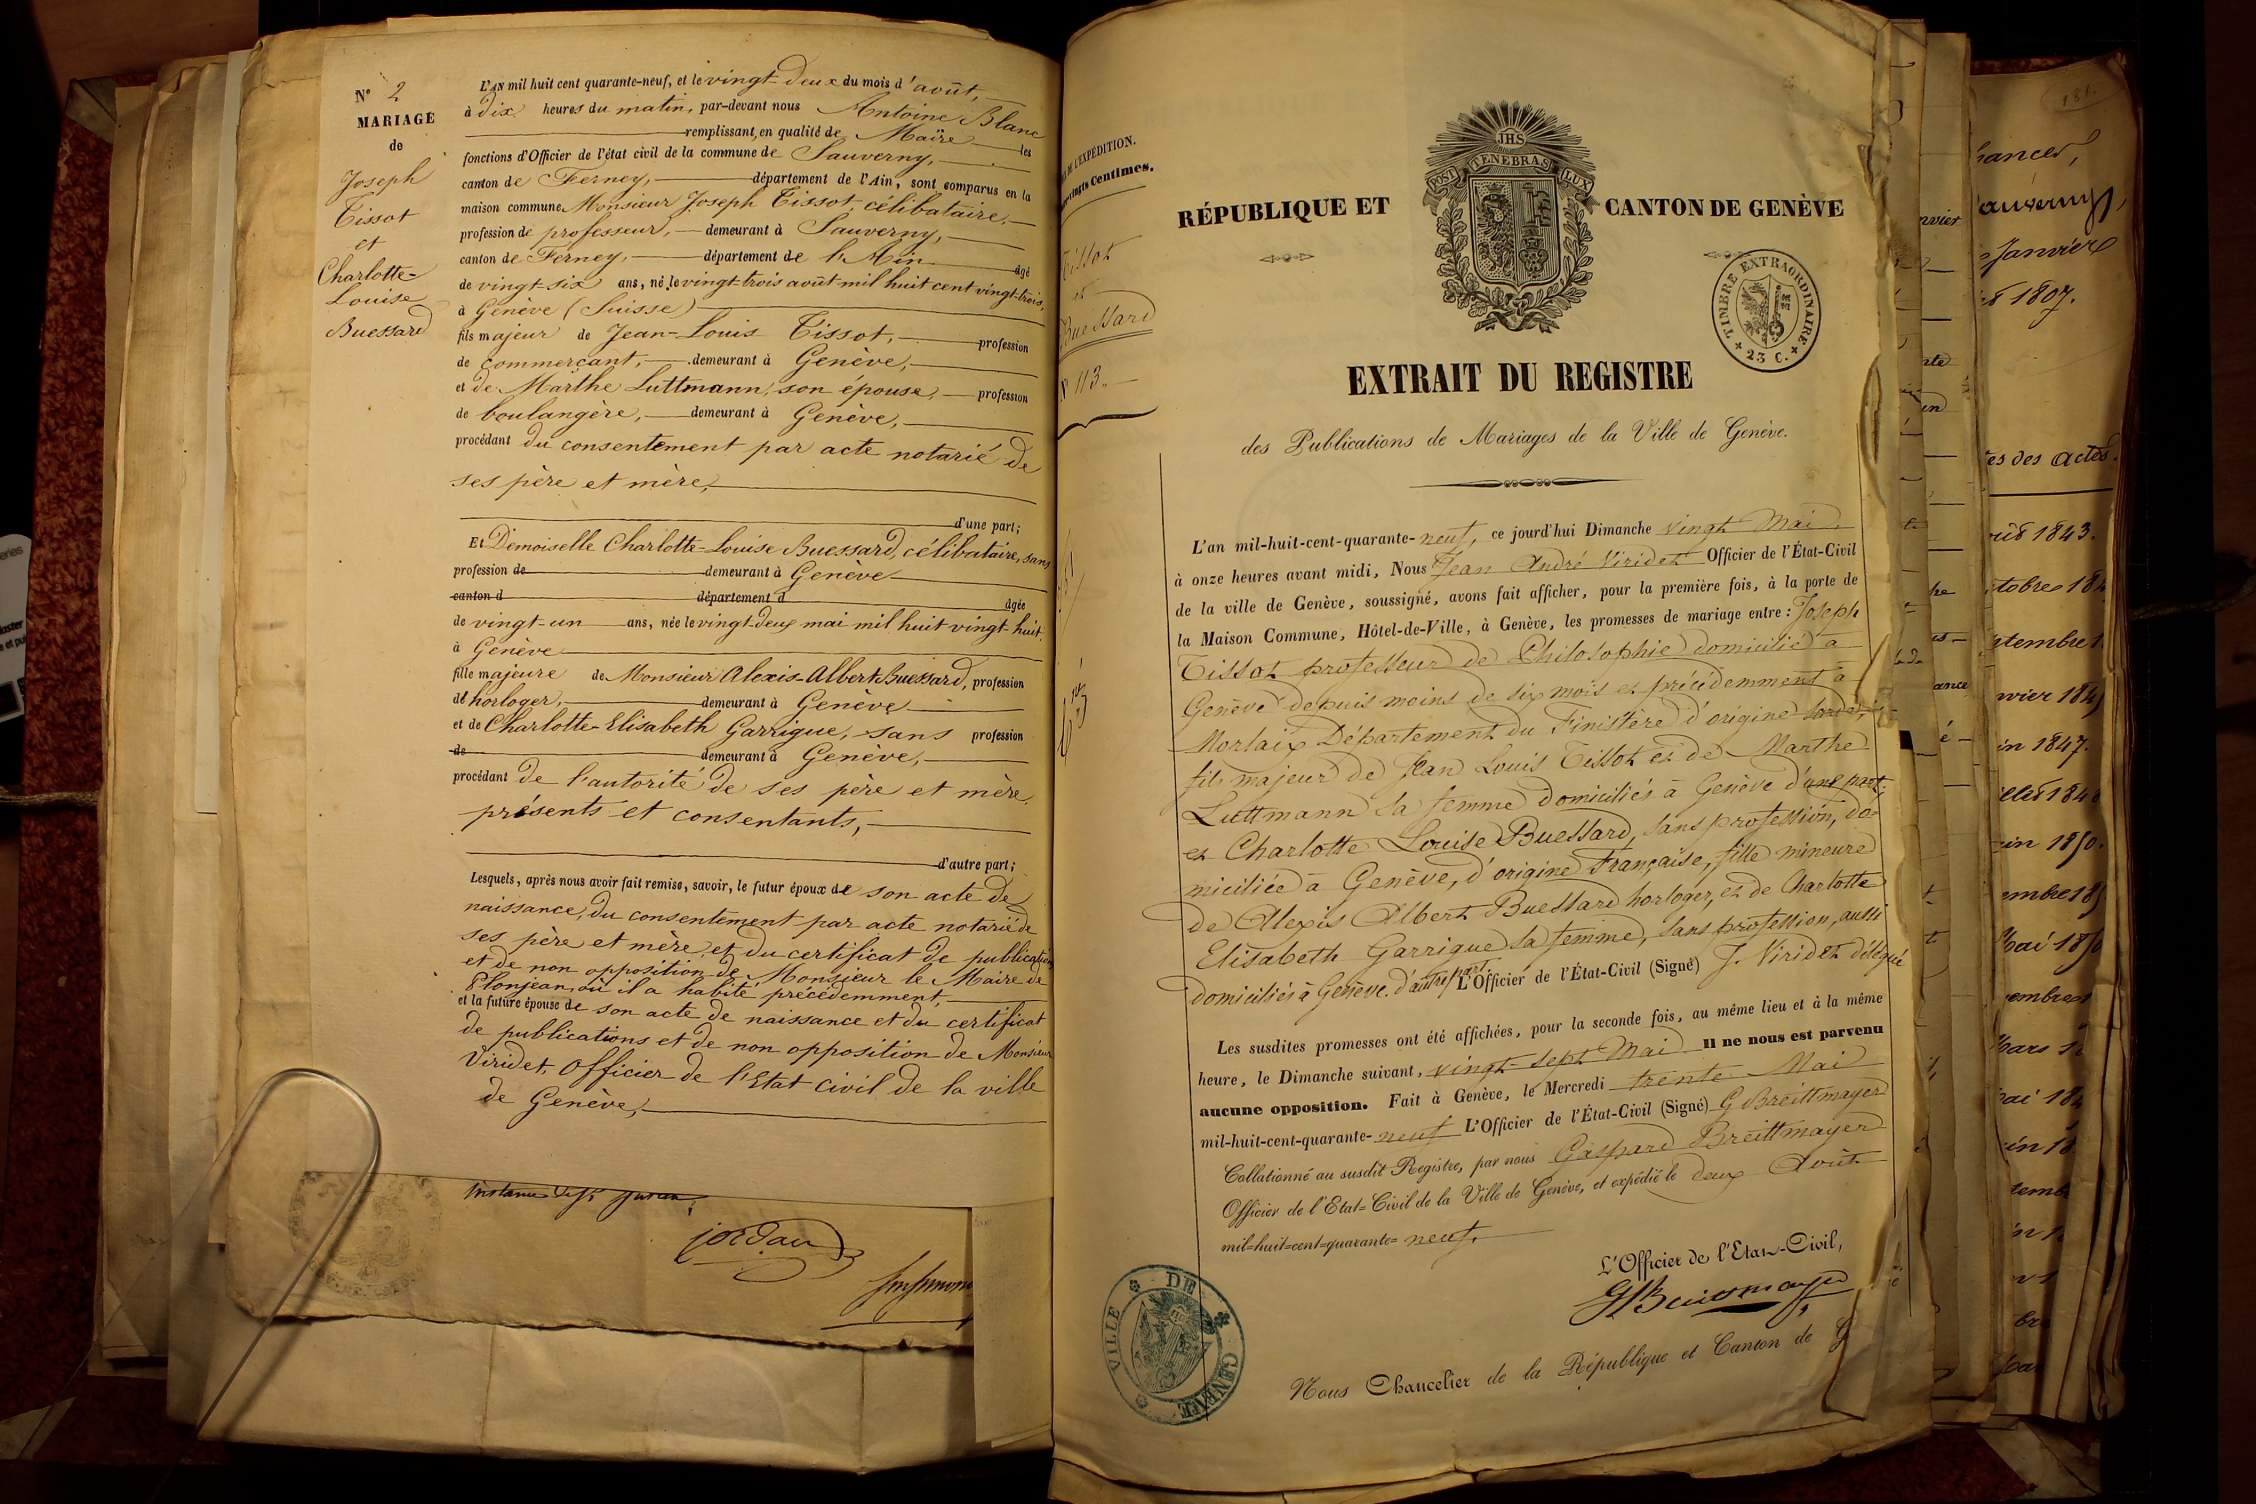 N° 2
MARIAGE
de
Joseph
Tissot
et
Charlotte-
Louise
Buessard
L'AN mil huit cent quarante-neuf, et le vingt-deux du mois d'août,
à dix heures du matin, par-devant nous Antoine Blanc
remplissant, en qualité de Maire les
fonctions d'Officier de l'état civil de la commune de Sauverny,
canton de Ferney, département de l'Ain, sont comparus en la
maison commune Monsieur Joseph Tissot, célibataire,
profession de professeur, demeurant à Sauverny,
canton de Ferney, département de l'Ain âgé
de vingt-six ans, né le vingt-trois août mil huit cent vingt-trois,
à Genève (Suisse)
fils majeur de Jean-Louis Tissot, profession
de commerçant, demeurant à Genève,
et de Marthe Luttmann, son épouse, profession
de boulangère, demeurant à Genève,
procédant du consentement par acte notarié de
ses père et mère,
d'une part;
Et Demoiselle Charlotte-Louise Buessard, célibataire, sans
profession de demeurant à Genève
canton d département d âgée
de vingt-un ans, née le vingt-deux mai mil huit vingt-huit,
à Genève
fille majeure de Monsieur Alexis-Albert Buessard, profession
de horloger, demeurant à Genève
et de Charlotte-Elisabeth Garrigue, sans profession
de demeurant à Genève,
procédant de l'autorité de ses père et mère
présents et consentants,
d'autre part;
Lesquels, après nous avoir fait remise, savoir, le futur époux de son acte de
naissance, du consentement par acte notarié de
ses père et mère, et du certificat de publication
et de non opposition de Monsieur le Maire de
Plonjean où il a habité précédemment,
et la future épouse de son acte de naissance et du certificat
de publications et de non opposition de Monsieur
Viridet, Officier de l'Etat civil de la ville
de Genève,
Jordan
L'EXPÉDITION.
vingts Centimes.
Tissot
et
Buessard
N° 113.
RÉPUBLIQUE ET CANTON DE GENÈVE
JHS
POST TENEBRAS LUX
TIMBRE EXTRAORDINAIRE
23 C.
EXTRAIT DU REGISTRE
des Publications de Mariages de la Ville de Genève.
L'an mil-huit-cent-quarante-neuf, ce jourd'hui Dimanche vingt Mai,
à onze heures avant midi, Nous Jean André Viridet Officier de l'État-Civil
de la ville de Genève, soussigné, avons fait afficher, pour la première fois, à la porte de
la Maison Commune, Hôtel-de-Ville, à Genève, les promesses de mariage entre: Joseph
Tissot professeur de Philosophie domicilié à
Genève depuis moins de six mois et précédemment à
Morlaix Département du Finistère d'origine Sarde,
fils majeur de Jean Louis Tissot et de Marthe
Luttmann sa femme domiciliés à Genève d'une part;
et Charlotte Louise Buessard, sans profession, do-
miciliée à Genève, d'origine Française, fille mineure
de Alexis Albert Buessard horloger, et de Charlotte
Elisabeth Garrigue sa femme, sans profession, aussi
domiciliés à Genève. d'autre part. L'Officier de l'État-Civil (Signé) J. Viridet délégué
Les susdites promesses ont été affichées, pour la seconde fois, au même lieu et à la même
heure, le Dimanche suivant, vingt-sept Mai Il ne nous est parvenu
aucune opposition. Fait à Genève, le Mercredi trente Mai
mil-huit-cent-quarante-neuf L'Officier de l'État-Civil (Signé) G Breittmayer
Collationné au susdit Registre, par nous Gaspard Breittmayer
Officier de l'Etat-Civil de la Ville de Genève, et expédié le deux Août
mil-huit-cent-quarante-neuf.
L'Officier de l'Etat-Civil,
G Breittmayer
VILLE DE GENEVE
Nous Chancelier de la République et Canton de G
181.
Janvier
1807.
des actes.
1843.
1847.
1850.
Mai 1850
Mars